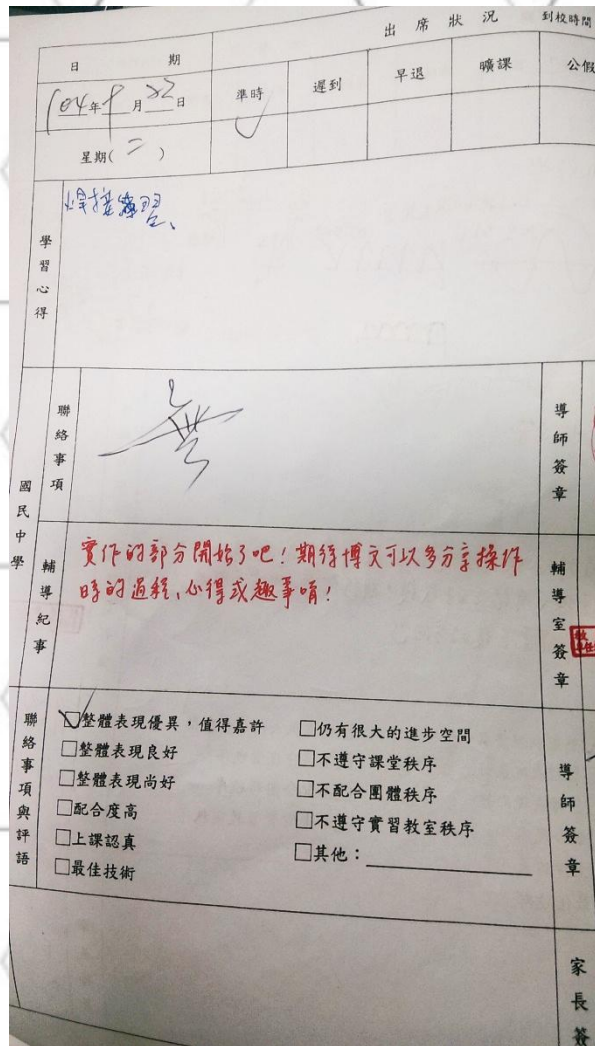 出席狀況 到校時間
日期 準時 遲到 早退 曠課 公假
104年9月22日
星期(二)
學習心得
焊接練習、
國民中學
聯絡事項
無
導師簽章
輔導紀事
實作的部分開始了吧!期待博文可以多分享操作
時的過程、心得或趣事唷!
輔導室簽章
聯絡事項與評語
整體表現優異,值得嘉許
□整體表現良好
□整體表現尚好
□配合度高
□上課認真
□最佳技術
□仍有很大的進步空間
□不遵守課堂秩序
□不配合團體秩序
□不遵守實習教室秩序
□其他:
導師簽章
家長簽